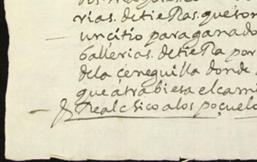 rias. de tieRas. que son
un citio para ganado
ballerias. de tieRa por
dela çeneguilla donde
que atrabiesa el cami
Real chico alos poçuelo